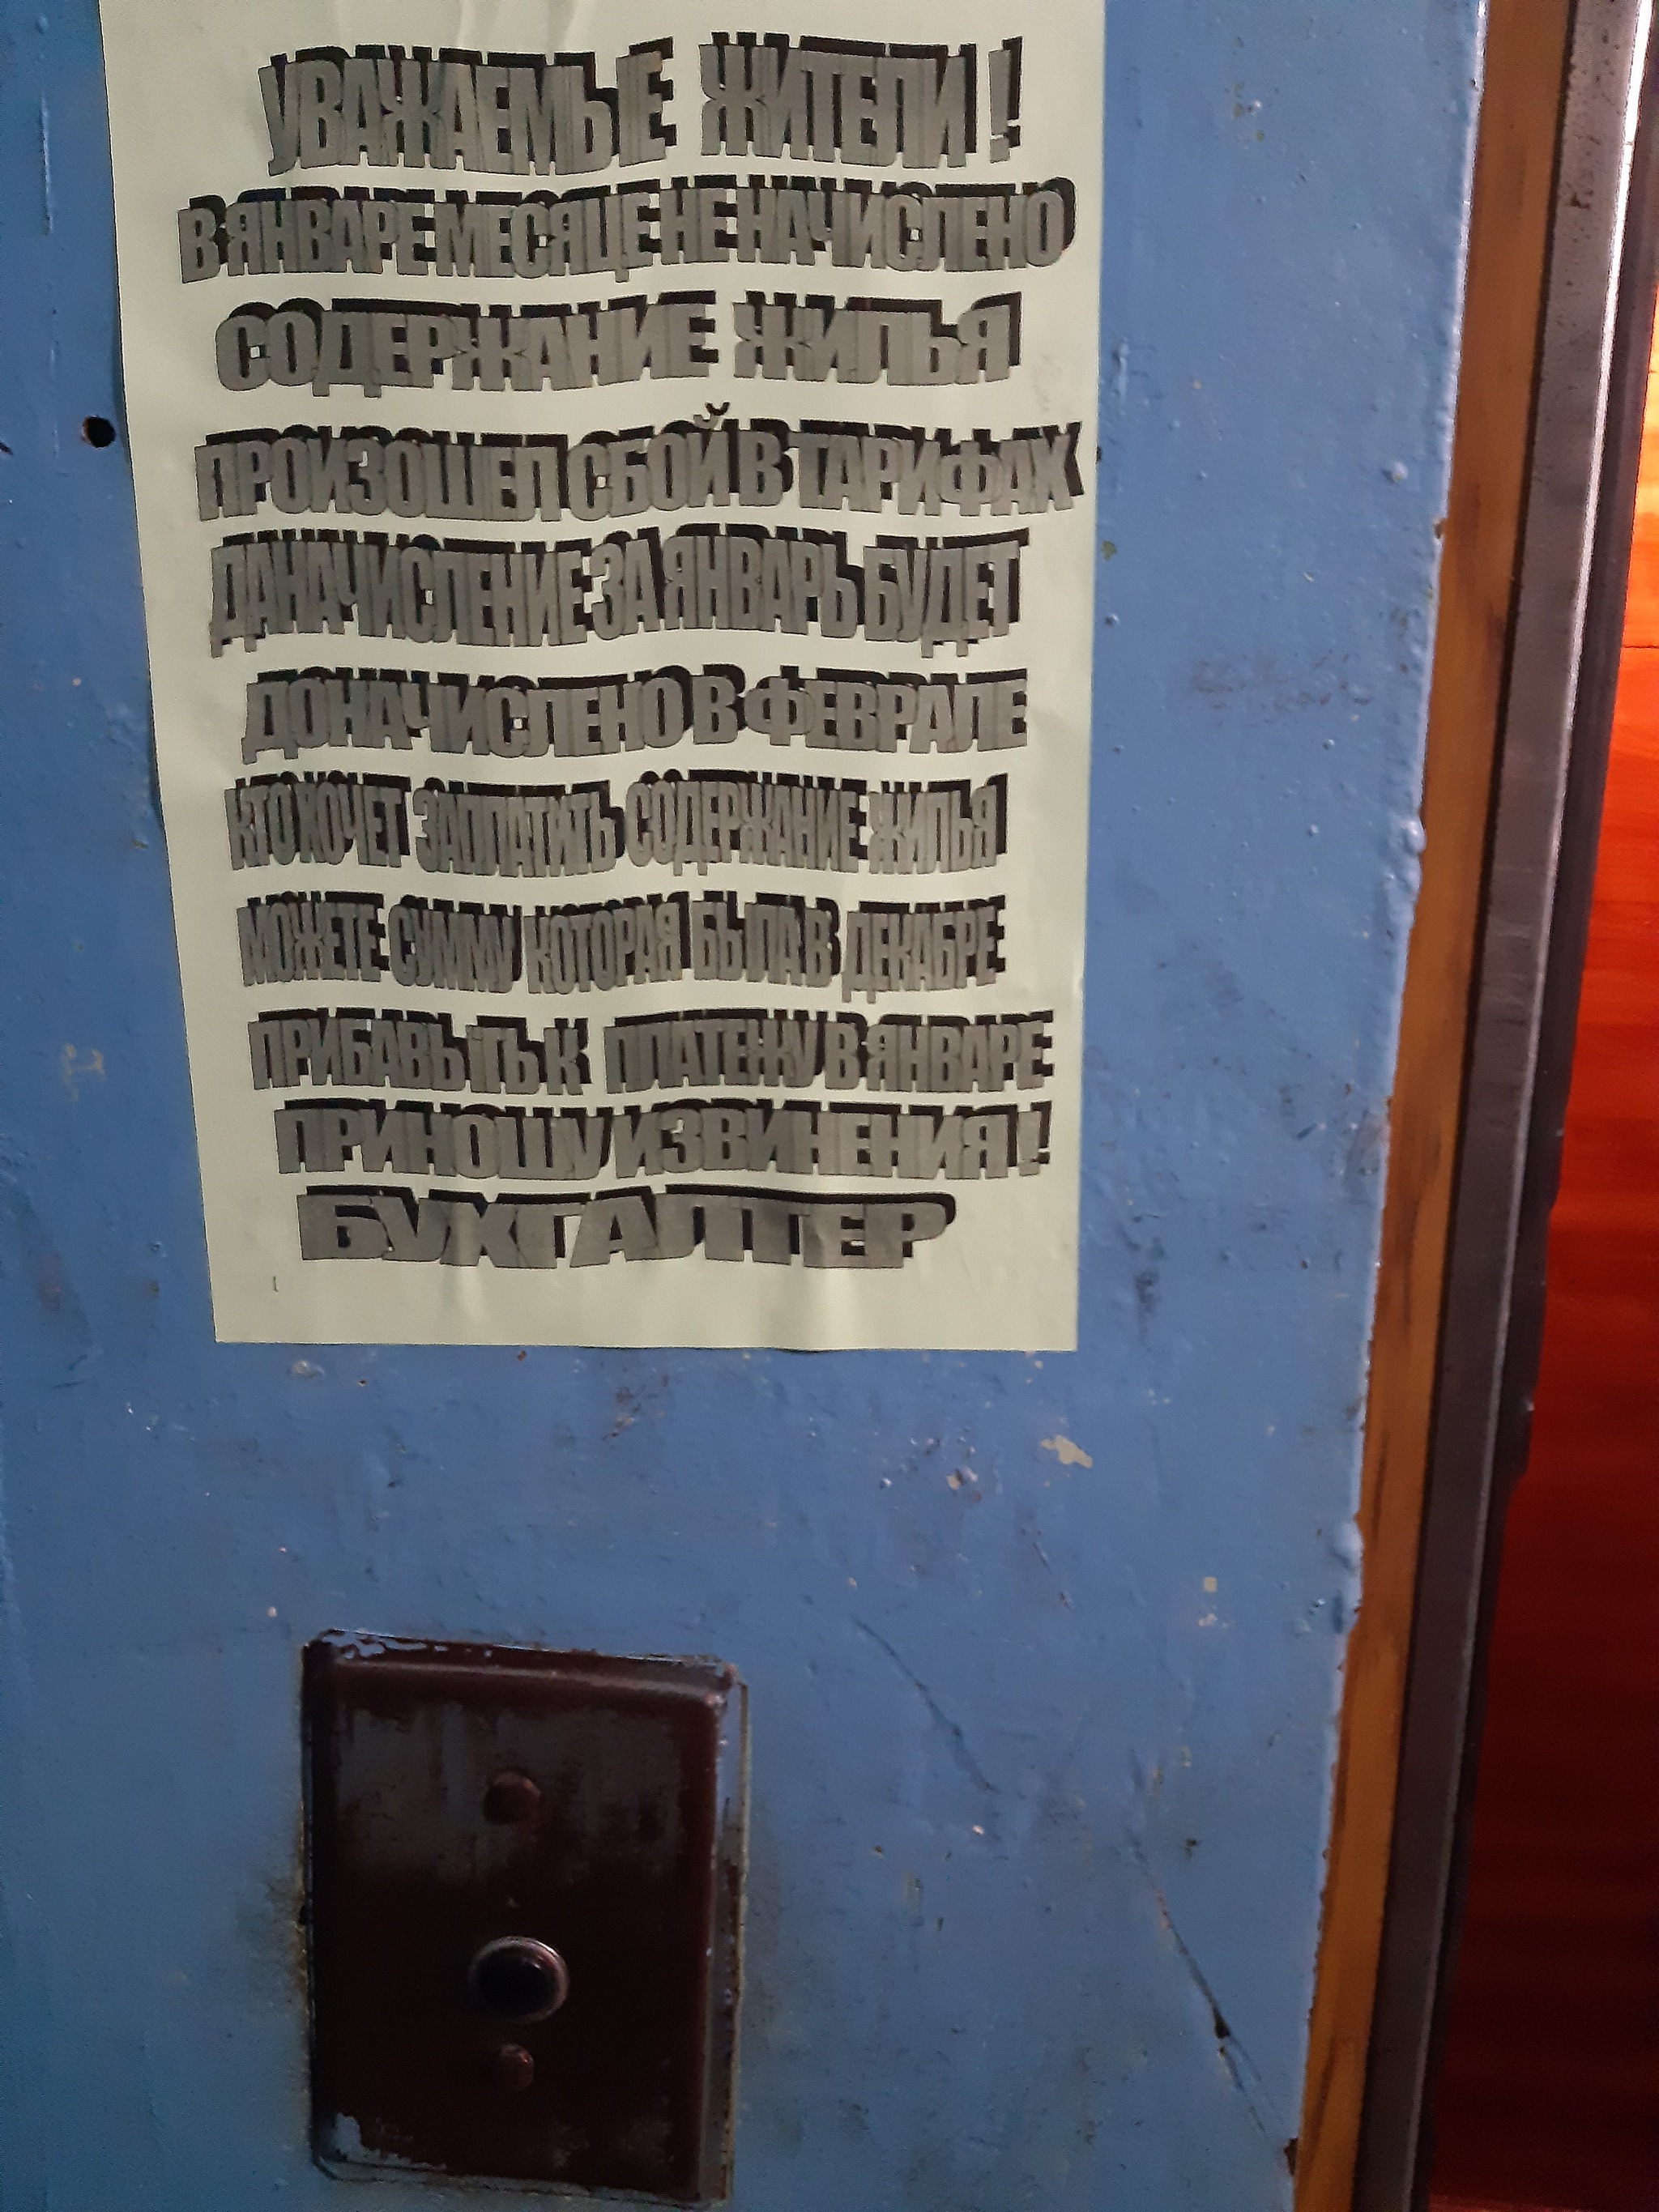 УВАЖАЕМЫЕ ЖИТЕЛИ !
В ЯНВАРЕ МЕСЯЦЕ НЕ НАЧИСЛЕНО
СОДЕРЖАНИЕ ЖИЛЬЯ
ПРОИЗОШЕЛ СБОЙ В ТАРИФАХ
ДАНАЧИСЛЕНИЕ ЗА ЯНВАРЬ БУДЕТ
ДОНАЧИСЛЕНО В ФЕВРАЛЕ
КТО ХОЧЕТ ЗАПЛАТИТЬ СОДЕРЖАНИЕ ЖИЛЬЯ
МОЖЕТЕ СУММУ КОТОРАЯ БЫЛА В ДЕКАБРЕ
ПРИБАВЫТЬ К ПЛАТЕЖУ В ЯНВАРЕ
ПРИНОШУ ИЗВИНЕНИЯ !
БУХГАЛТЕР